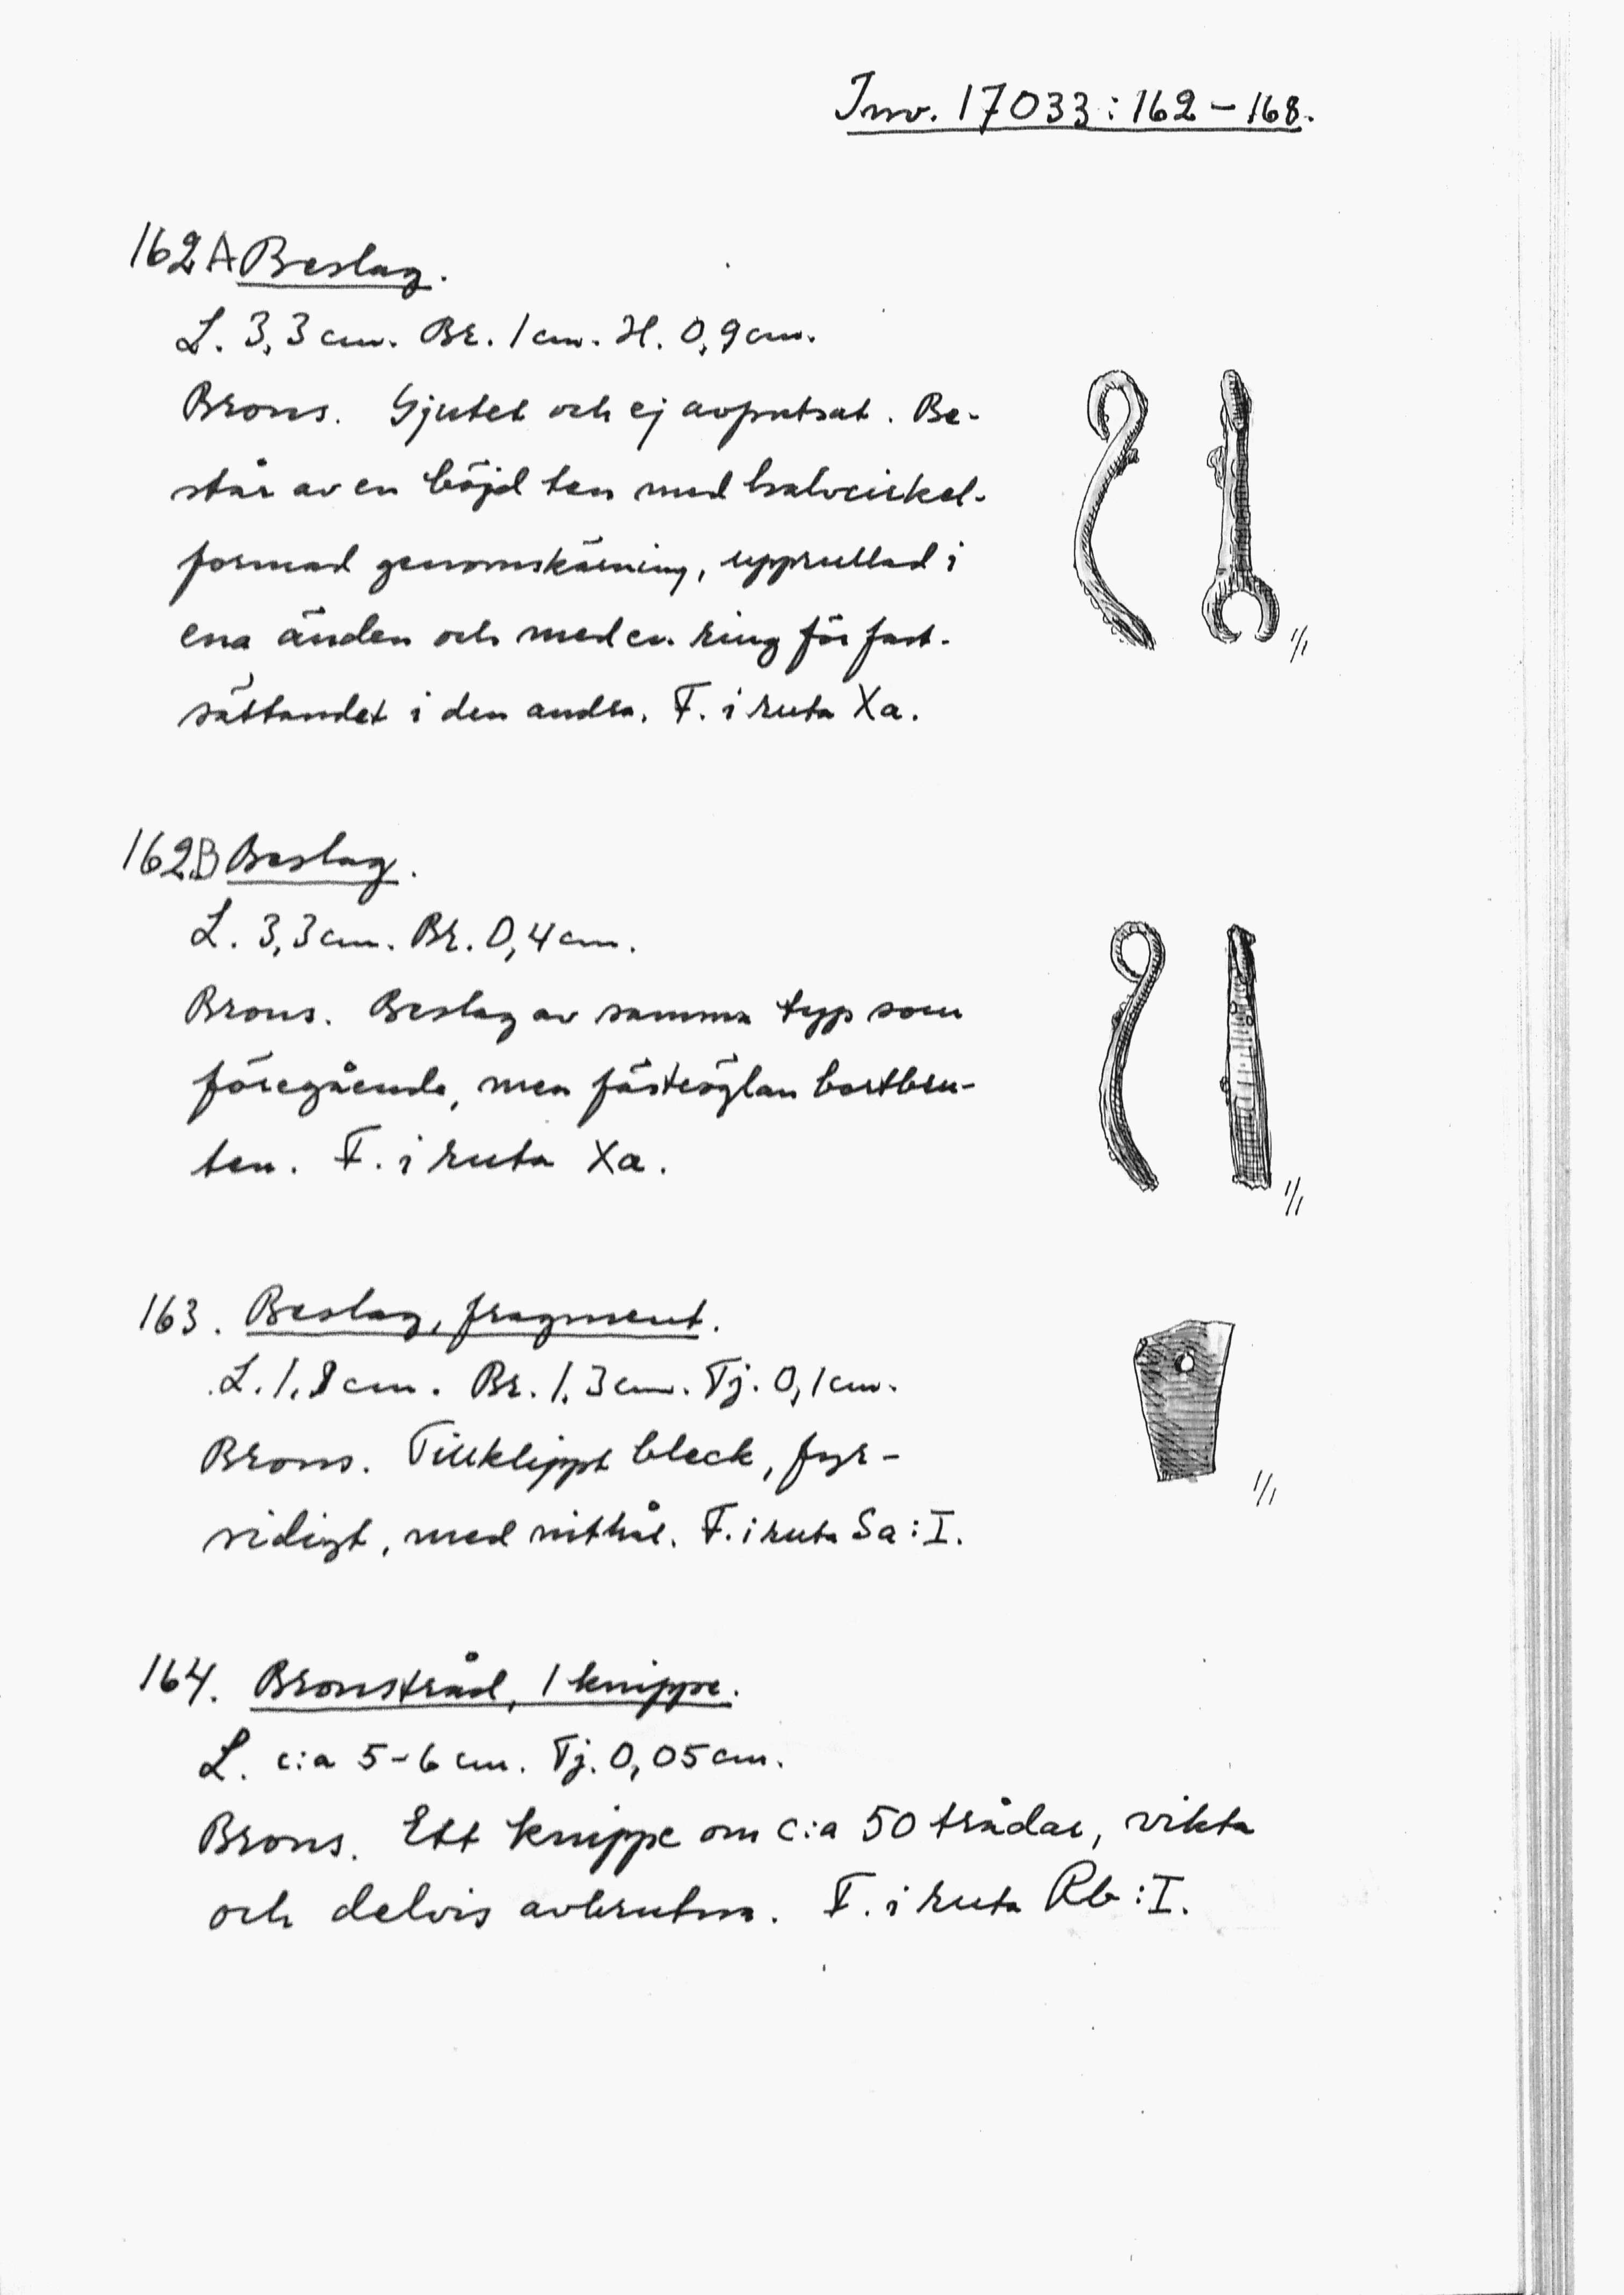 Inv. 17033:162-168.
162A Beslag.
L. 3,3 cm. Br. 1 cm. H. 0,9 cm.
Brons. Gjutet och ej avputsat. Be-
står av en böjd ten med halvcirkel-
formad genomskärning, upprullad i
ena änden och med en ring för fast-
sättandet i den andra. F. i ruta Xa.
1/1
162B Beslag.
L. 3,3 cm. Br. 0,4 cm.
Brons. Beslag av samma typ som
föregående, men fästeöglan bortbru-
ten. F. i ruta Xa.
1/1
163. Beslag, fragment.
L. 1,8 cm. Br. 1,3 cm. Tj. 0,1 cm.
Brons. Tillklippt bleck, fyr-
sidigt, med nithål. F. i ruta Sa:I.
1/1
164. Bronstråd, 1 knippe.
L. c:a 5-6 cm. Tj. 0,05 cm.
Brons. Ett knippe om c:a 50 trådar, vikta
och delvis avbrutna. F. i ruta Rb:I.